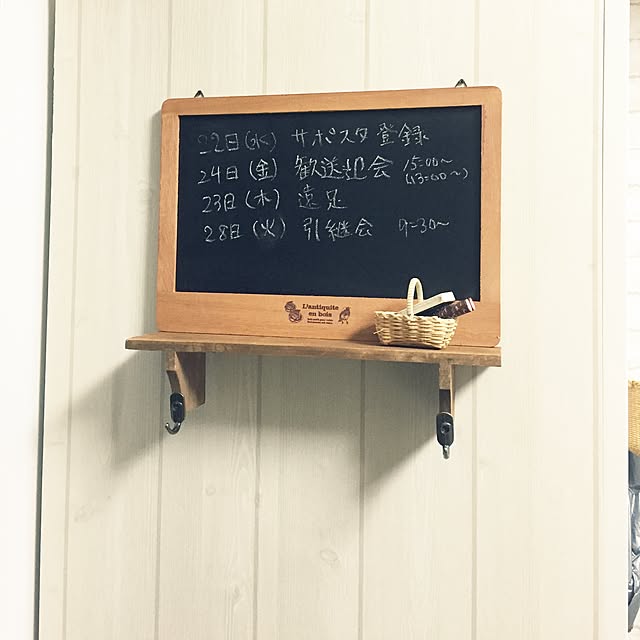 22日(水) サポスタ登録
24日(金) 歓送迎会 15:00~
(13:00~)
23日(木) 遠足
28日(火) 引継会 9:30~
L'antiquite
en bois